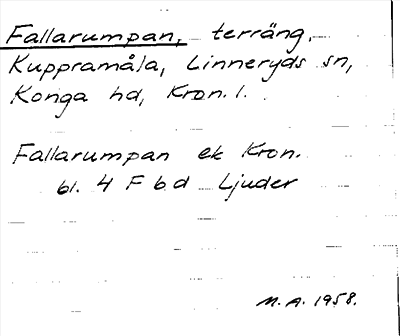 Fallarumpan, terräng,
Kuppramåla, Linneryds sn,
Konga hd, Kron. l.
Fallarumpan ek Kron.
bl. 4 F b d Ljuder
M. A. 1958.